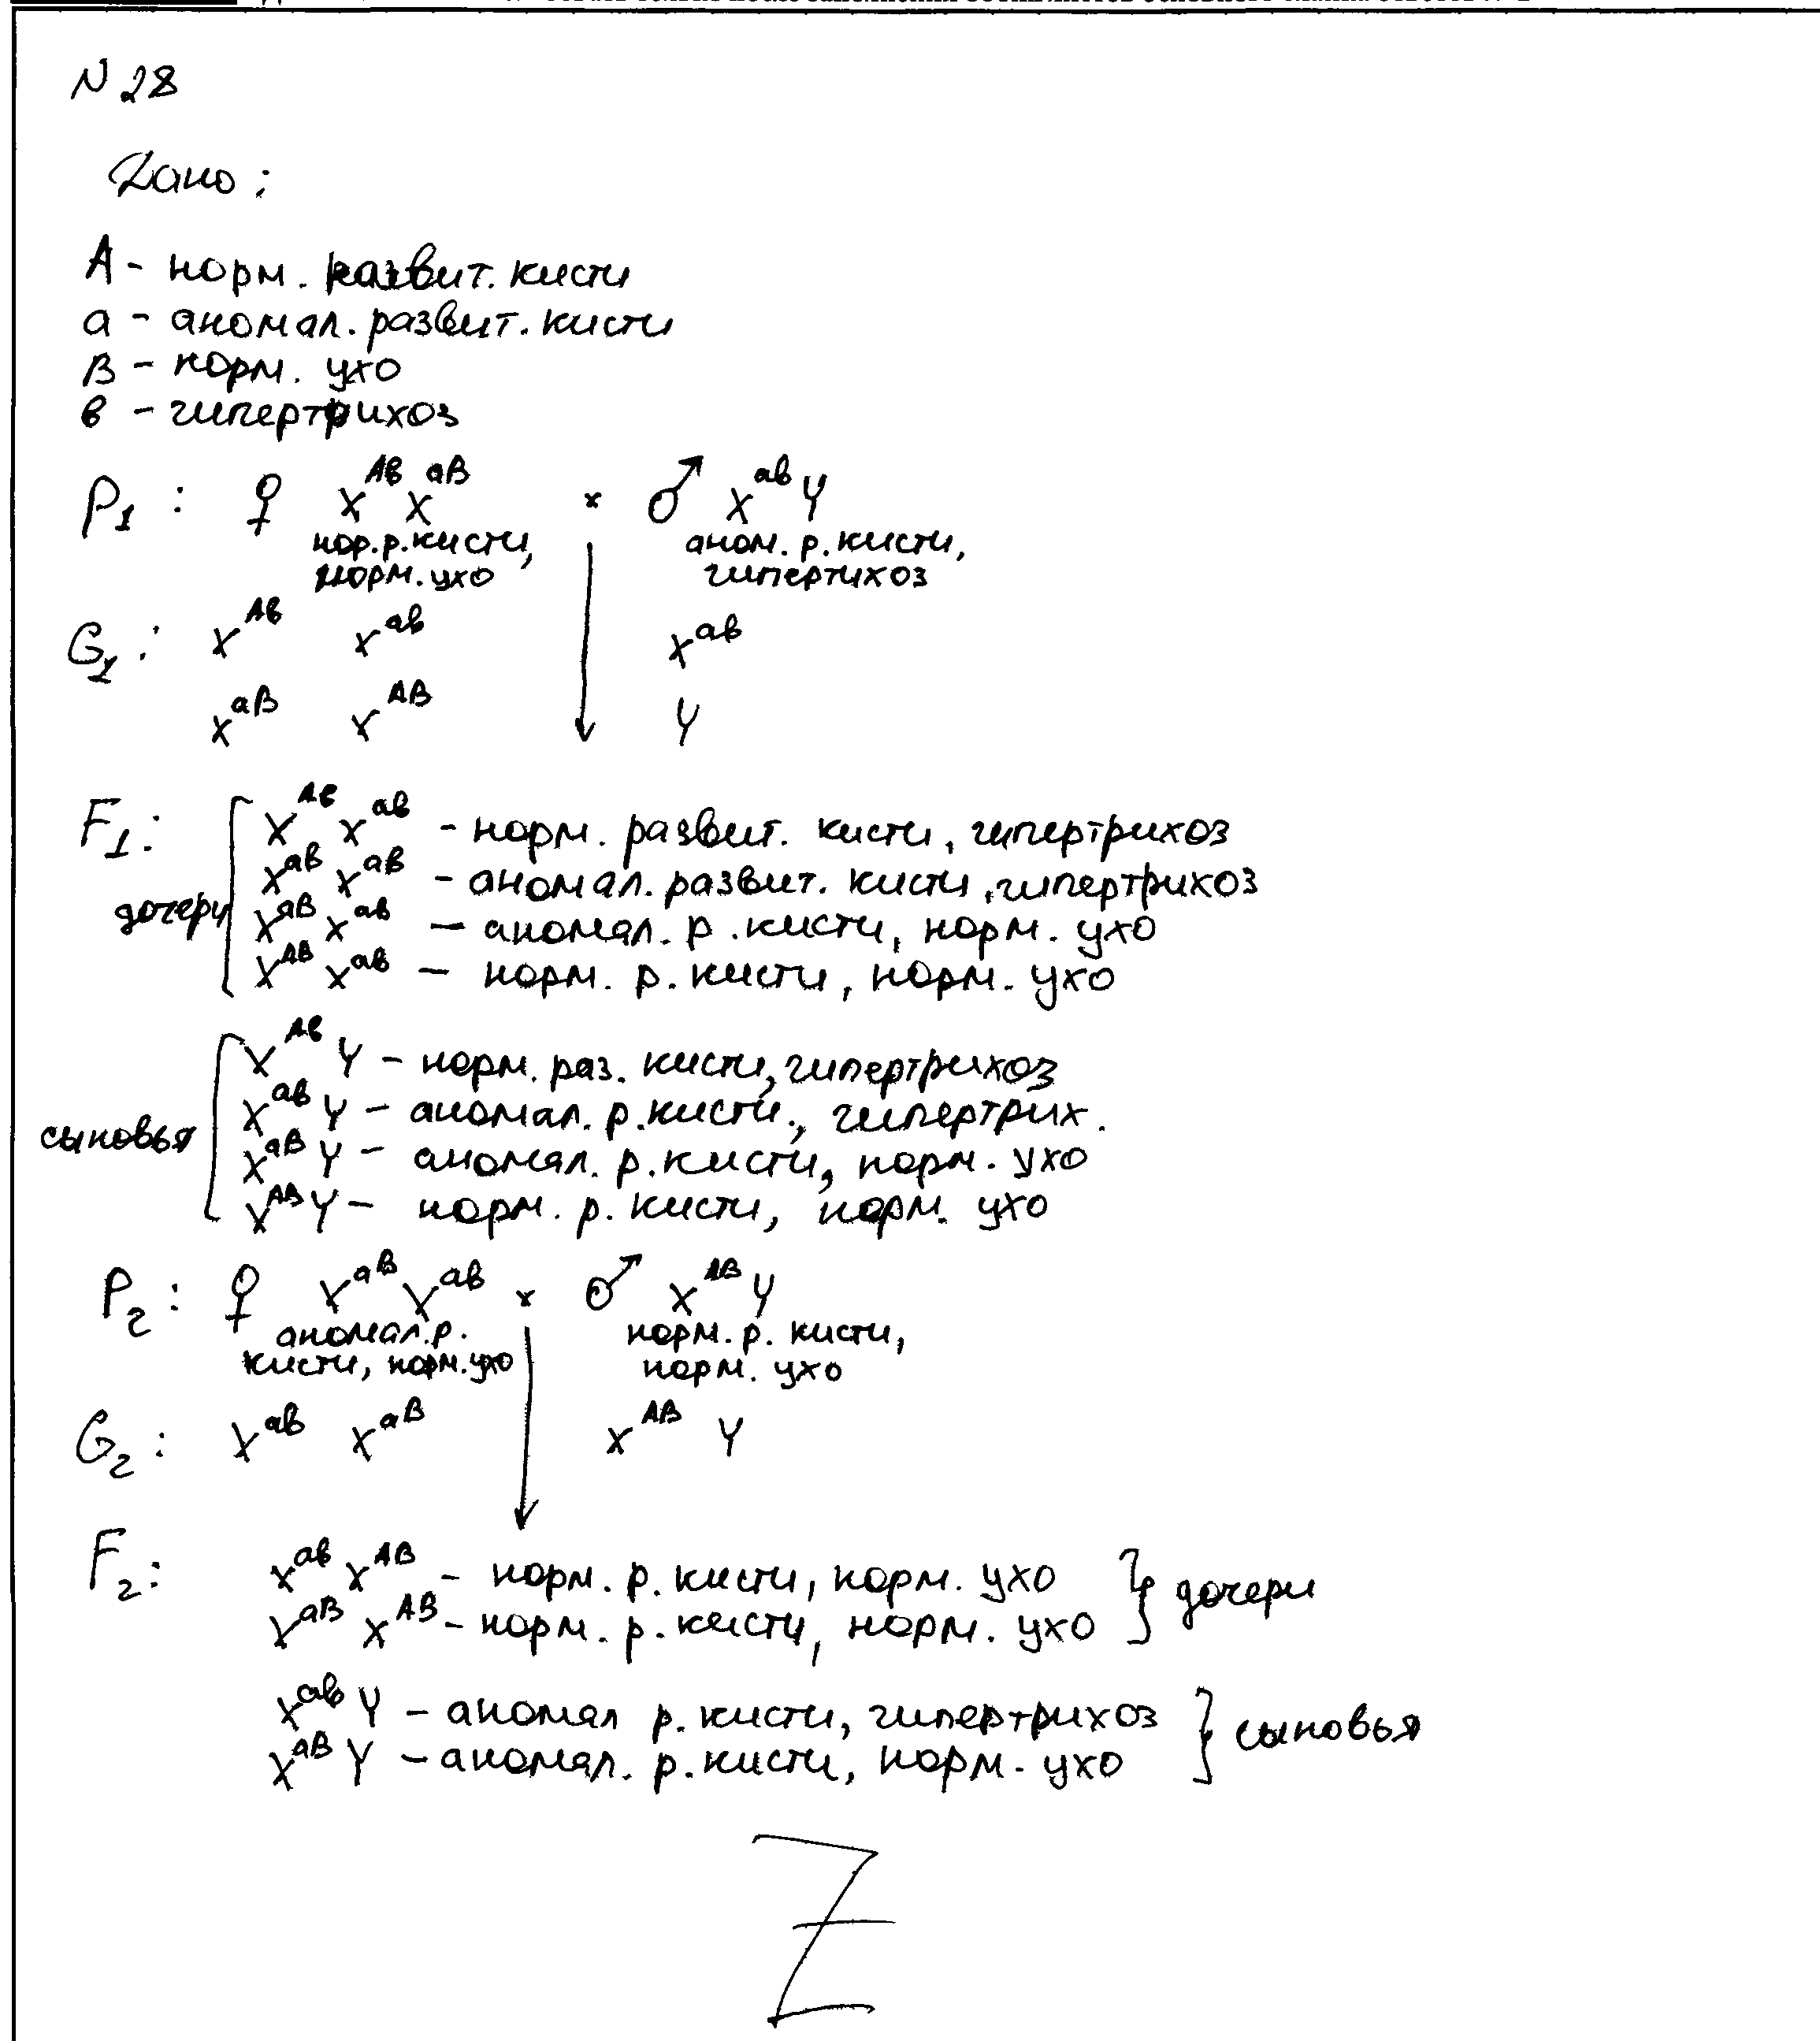 N 28
Дано:
А - норм. развит. кисти
а - аномал. развит. кисти
В - норм. ухо
в - гипертрихоз
P1 : ♀ X^Aв X^aB × ♂ X^aв Y
нор. р. кисти, аном. р. кисти,
норм. ухо гипертихоз
G1 : X^Aв X^aв X^aв
X^aB X^AB Y
F1 : X^Aв X^aв - норм. развит. кисти, гипертрихоз
X^aв X^aв - аномал. развит. кисти, гипертрихоз
дочери X^aB X^aв - аномал. р. кисти, норм. ухо
X^AB X^aв - норм. р. кисти, норм. ухо
X^Aв Y - норм. раз. кисти, гипертрихоз
X^aв Y - аномал. р. кисти, гипертрих.
сыновья X^aB Y - аномал. р. кисти, норм. ухо
X^AB Y - норм. р. кисти, норм. ухо
P2 : ♀ X^aB X^aв × ♂ X^AB Y
аномал. р. норм. р. кисти,
кисти, норм. ухо норм. ухо
G2 : X^aв X^aB X^AB Y
F2 : X^aв X^AB - норм. р. кисти, норм. ухо } дочери
X^aB X^AB - норм. р. кисти, норм. ухо
X^aв Y - аномал р. кисти, гипертрихоз } сыновья
X^aB Y - аномал. р. кисти, норм. ухо
Z